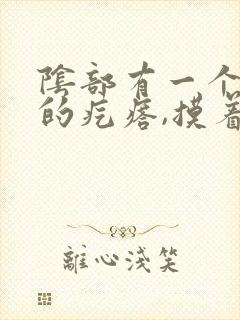 陰部有一个
的疙瘩,摸着
離心浅笑